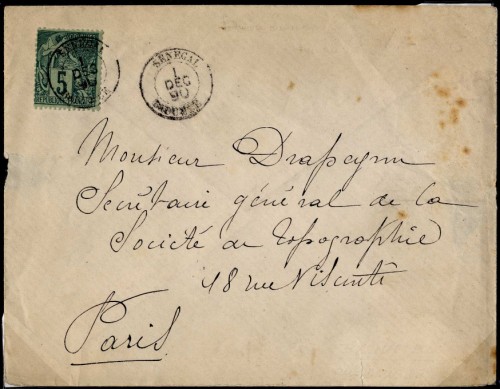 5
SENEGAL
1
DEC
90
Monsieur Drapeyron
Secrétaire général de la
Société de Topographie
18 rue Visconti
Paris